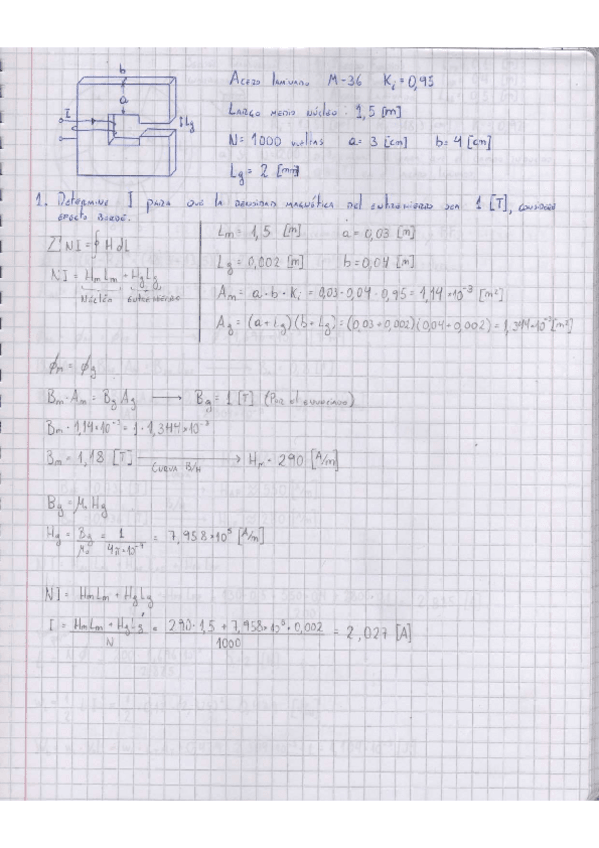 b
a
I
Lg
Acero laminado M-36 Ki = 0,95
Largo medio núcleo: 1,5 [m]
N = 1000 vueltas a = 3 [cm] b = 4 [cm]
Lg = 2 [mm]
1. Determine I para que la densidad magnética del entrehierro sea 1 [T], considere
efecto borde.
Σ NI = ∮ H dL
NI = HmLm + HgLg
Núcleo entrehierro
Lm = 1,5 [m] a = 0,03 [m]
Lg = 0,002 [m] b = 0,04 [m]
Am = a·b·Ki = 0,03·0,04·0,95 = 1,14*10⁻³ [m²]
Ag = (a+Lg)(b+Lg) = (0,03+0,002)(0,04+0,002) = 1,344*10⁻³ [m²]
ϕm = ϕg
Bm·Am = Bg Ag → Bg = 1 [T] (Por el enunciado)
Bm·1,14*10⁻³ = 1·1,344*10⁻³
Bm = 1,18 [T] → Hm = 290 [A/m]
Curva B/H
Bg = μ₀ Hg
Hg = Bg/μ₀ = 1/4π*10⁻⁷ = 7,958*10⁵ [A/m]
NI = HmLm + HgLg
I = HmLm + HgLg / N = 290·1,5 + 7,958*10⁵·0,002 / 1000 = 2,027 [A]